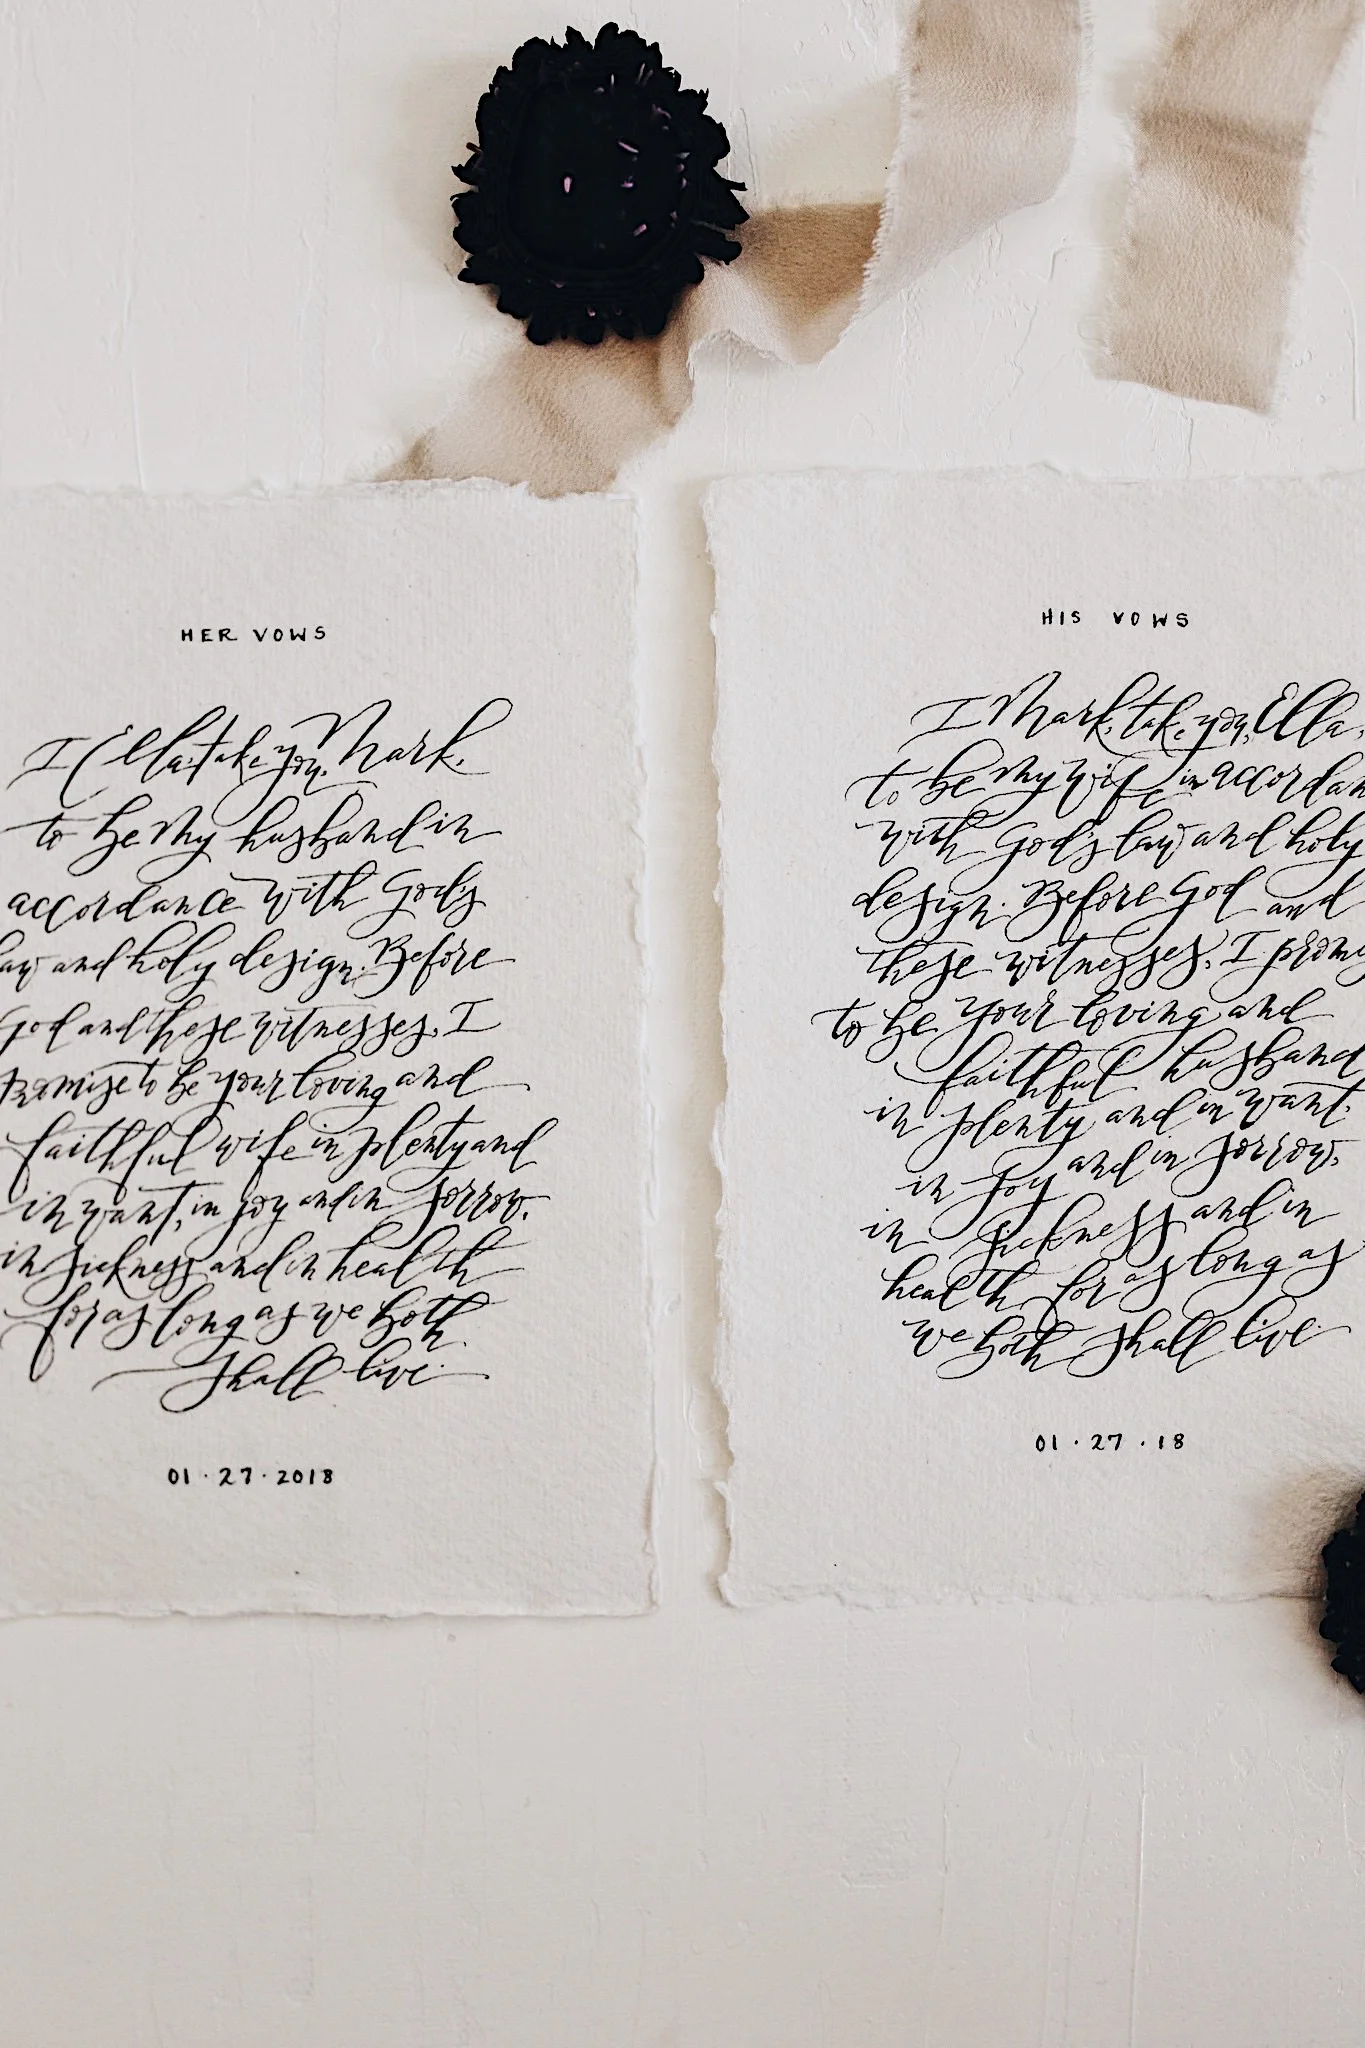 HER VOWS
I Ella, take you, Mark,
to be my husband in
accordance with God's
law and holy design. Before
God and these witnesses, I
promise to be your loving and
faithful wife in plenty and
in want, in joy and in sorrow,
in sickness and in health
for as long as we both
shall live.
01.27.2018
HIS VOWS
I Mark, take you, Ella,
to be my wife in accordan
with God's law and holy
design. Before God and
these witnesses, I promis
to be your loving and
faithful husband
in plenty and in want,
in joy and in sorrow,
in sickness and in
health for as long as
we both shall live.
01.27.18